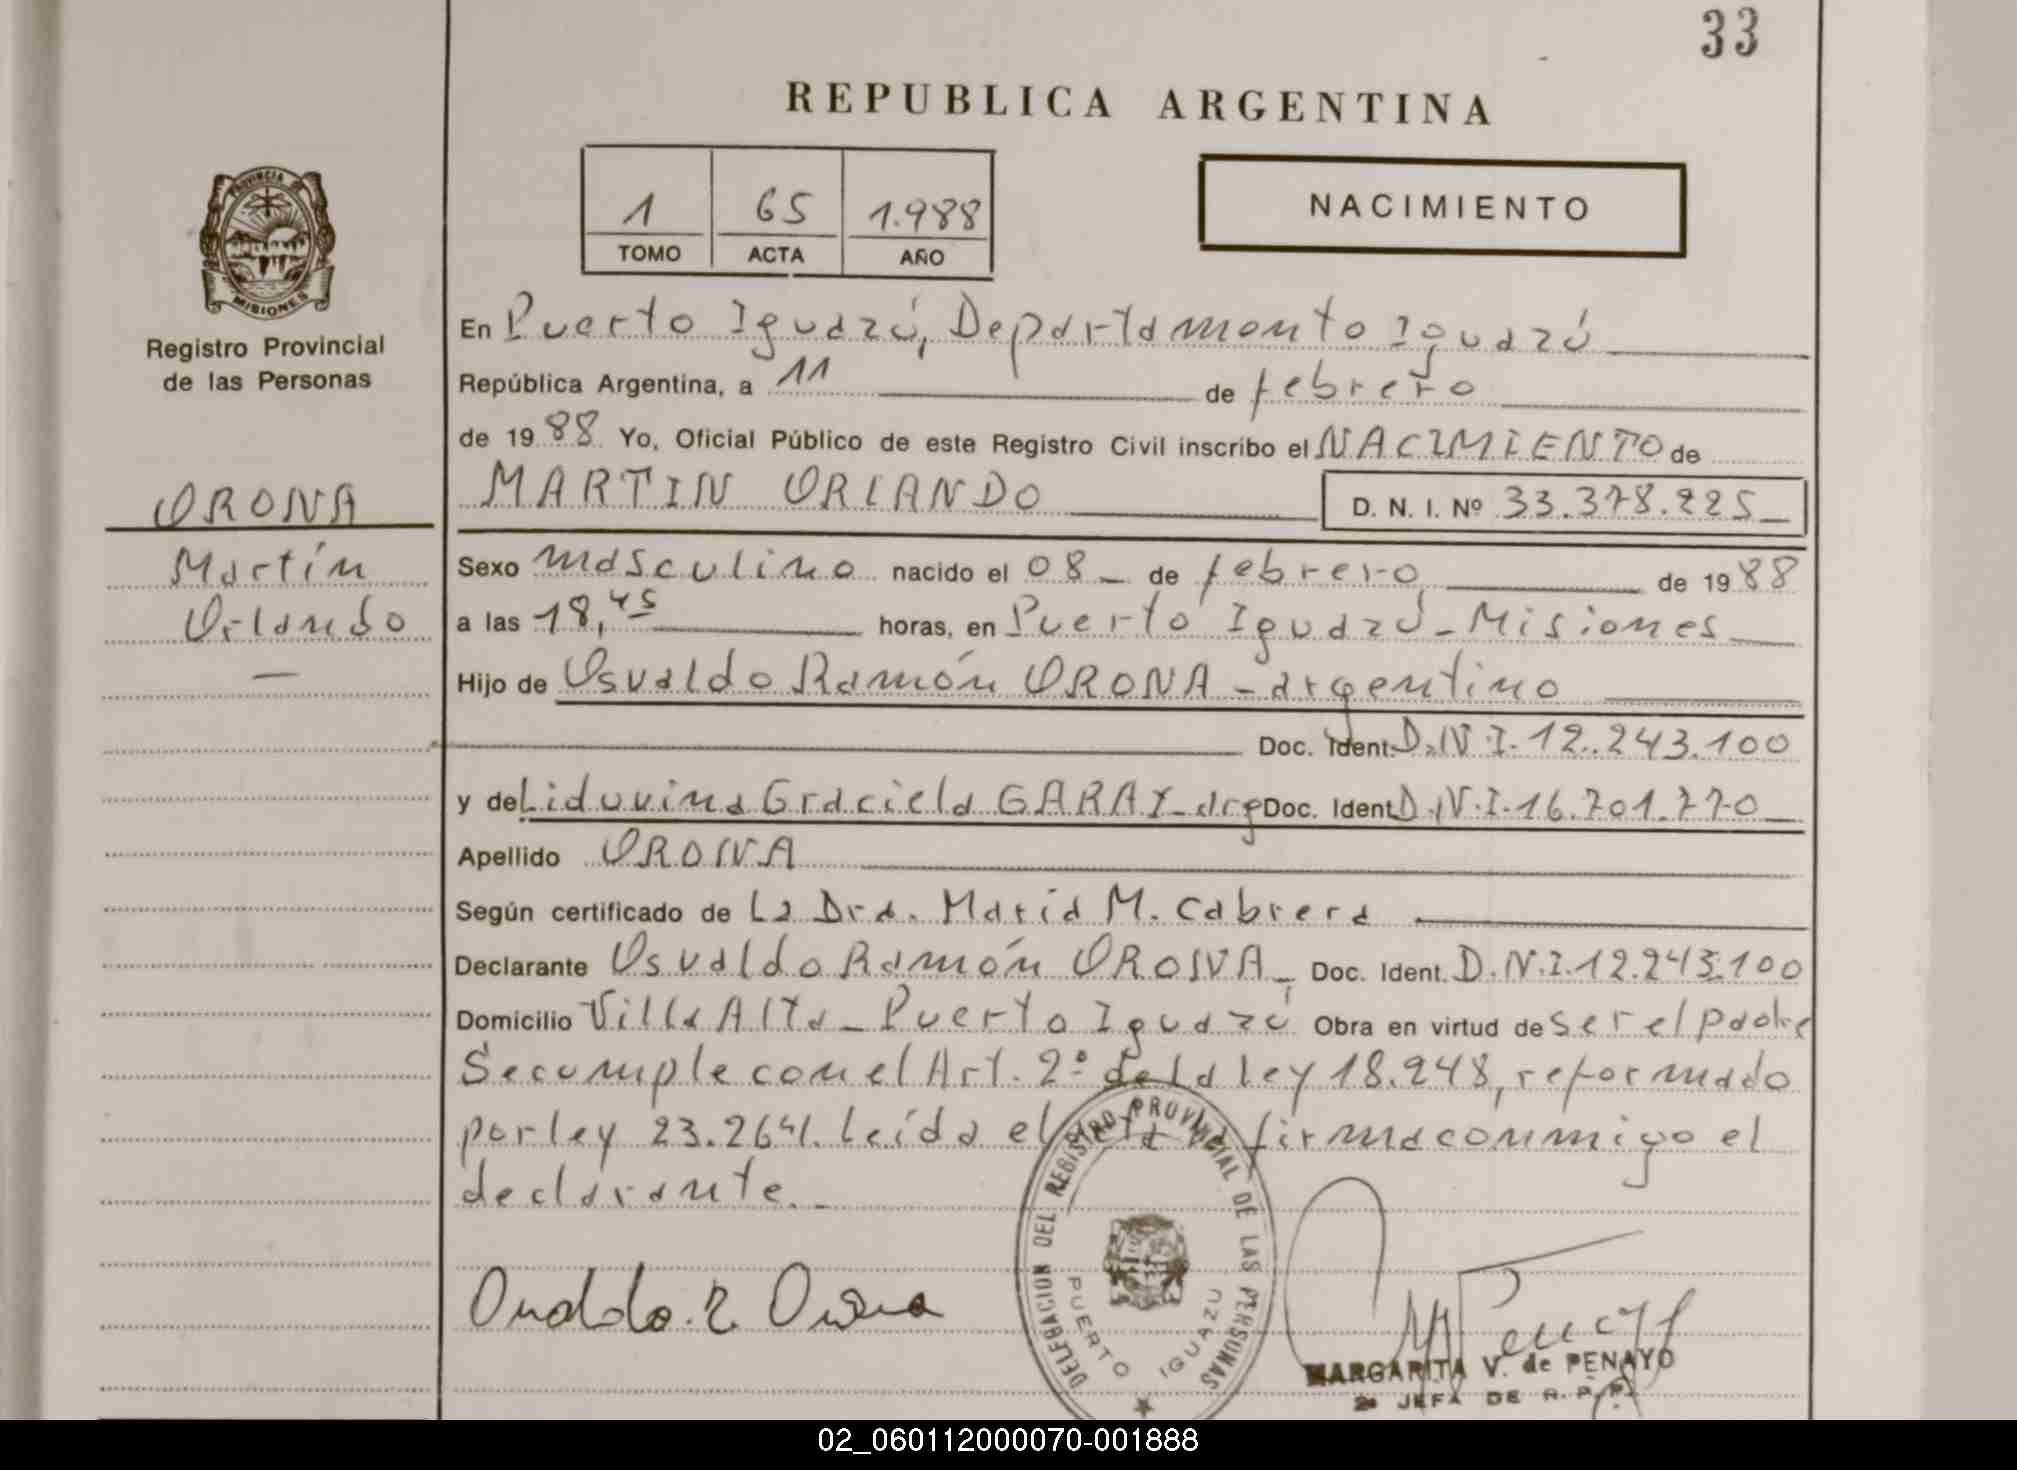 33
REPUBLICA ARGENTINA
1 65 1.988
TOMO ACTA AÑO
NACIMIENTO
PROVINCIA DE
MISIONES
Registro Provincial
de las Personas
ORONA
Martín
Orlando
—
En Puerto Iguazú, Departamento Iguazú
República Argentina, a 11 de febrero
de 1988 Yo, Oficial Público de este Registro Civil inscribo el NACIMIENTO de
MARTIN ORLANDO D. N. I. Nº 33.378.225
Sexo masculino nacido el 08 de febrero de 1988
a las 18,45 horas, en Puerto Iguazú - Misiones
Hijo de Osvaldo Ramón ORONA - argentino
Doc. Ident. D.N.I. 12.243.100
y de Liduvina Graciela GARAY - arg Doc. Ident. D.N.I. 16.701.770
Apellido ORONA
Según certificado de La Dra. María M. Cabrera
Declarante Osvaldo Ramón ORONA Doc. Ident. D.N.I. 12.243.100
Domicilio Villa Alta - Puerto Iguazú Obra en virtud de ser el padre
Se cumple con el Art. 2º de la ley 18.248, reformado
por ley 23.264. Leída el acta firma conmigo el
declarante.
DELEGACION DEL REGISTRO PROVINCIAL DE LAS PERSONAS
PUERTO IGUAZU
MARGARITA V. de PENAYO
2º JEFA DE R. P. P.
02_060112000070-001888